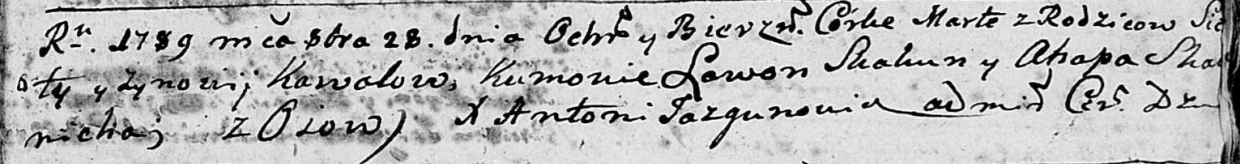 Rᵘ. 1789 mča 8bra 28. dnia Ochrz y Bierzm. Córke Marte z Rodzicow
y Zynowij Kawalow, Kumowie Lawon Skakun y Ahapa
nicha z Osow) X Antoni Jazgunowicz admin Cer.